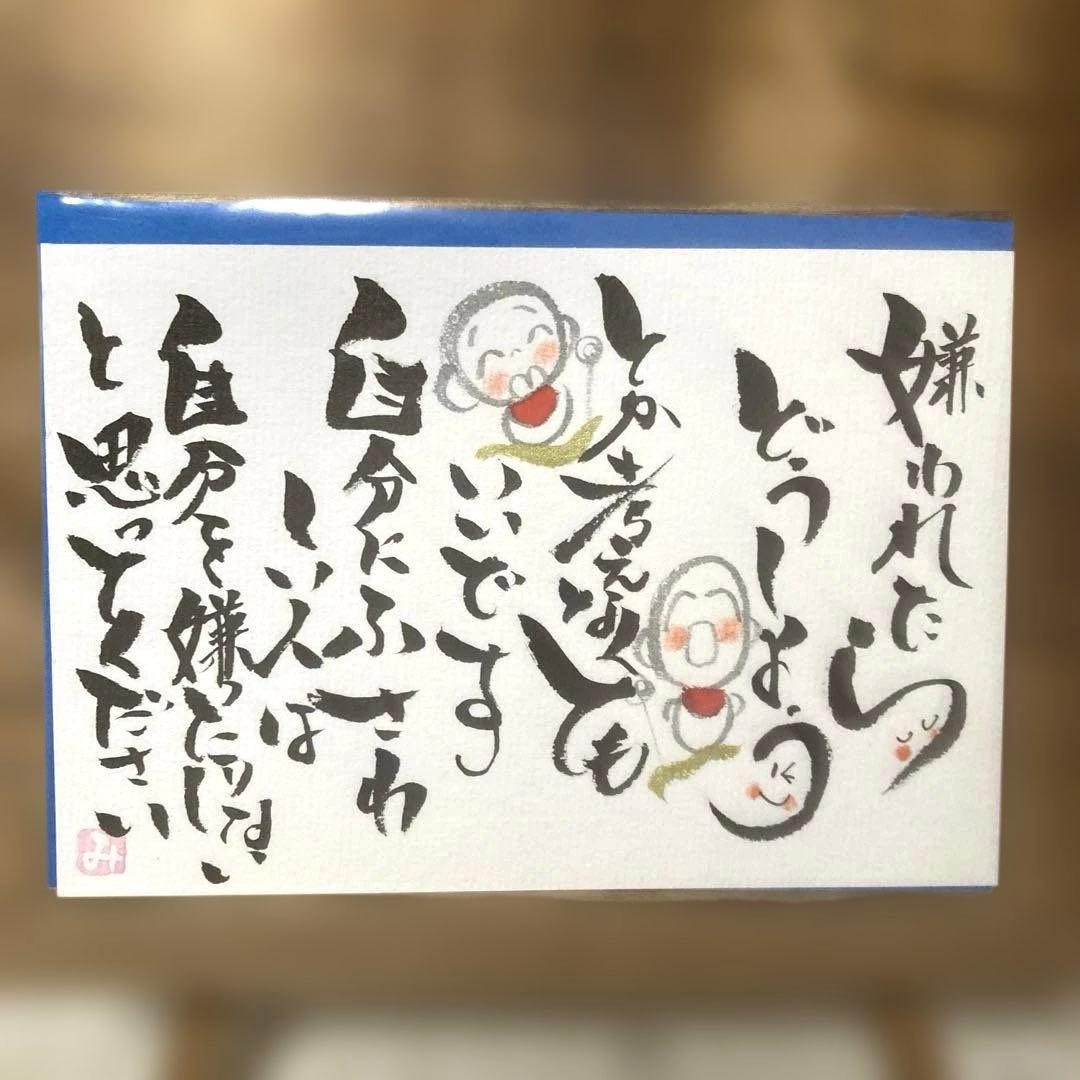 嫌われたら
どうしよう
とか考えなくても
いいです
自分にふさわ
しい人は
自分を嫌ったりしない
と思ってください
み